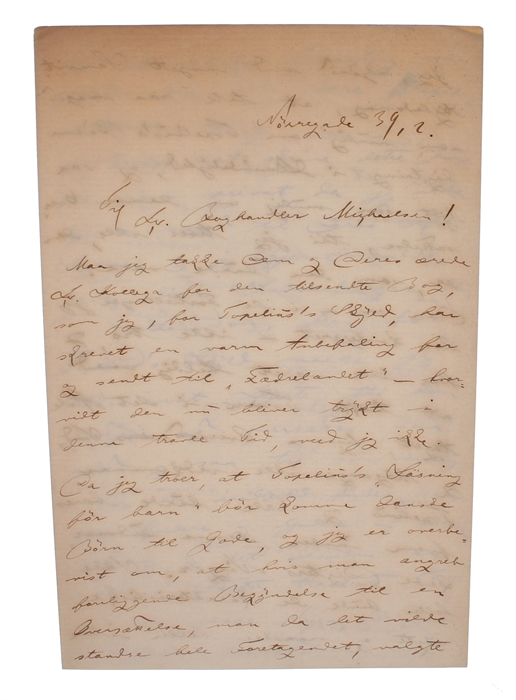 Nörregade 39, 2.
Til Hr. Boghandler Michaelsen!
Maa jeg takke Dem og Deres ærede
Hr. Kollega for den tilsendte Bog,
som jeg, for Topelius's Skyld, har
skrevet en varm Anbefaling for
og sendt til "Fædrelandet" — hvor-
vidt den nu bliver trykt i
denne travle Tid, veed jeg ikke.
Da jeg troer, at Topelius's "Läsning
för barn" bör komme danske
Börn til Gode, og jeg er overbe-
vist om, at hvis man angreb
foreliggende Begyndelse til en
Oversættelse, man da let vilde
standse hele Foretagendet, valgte